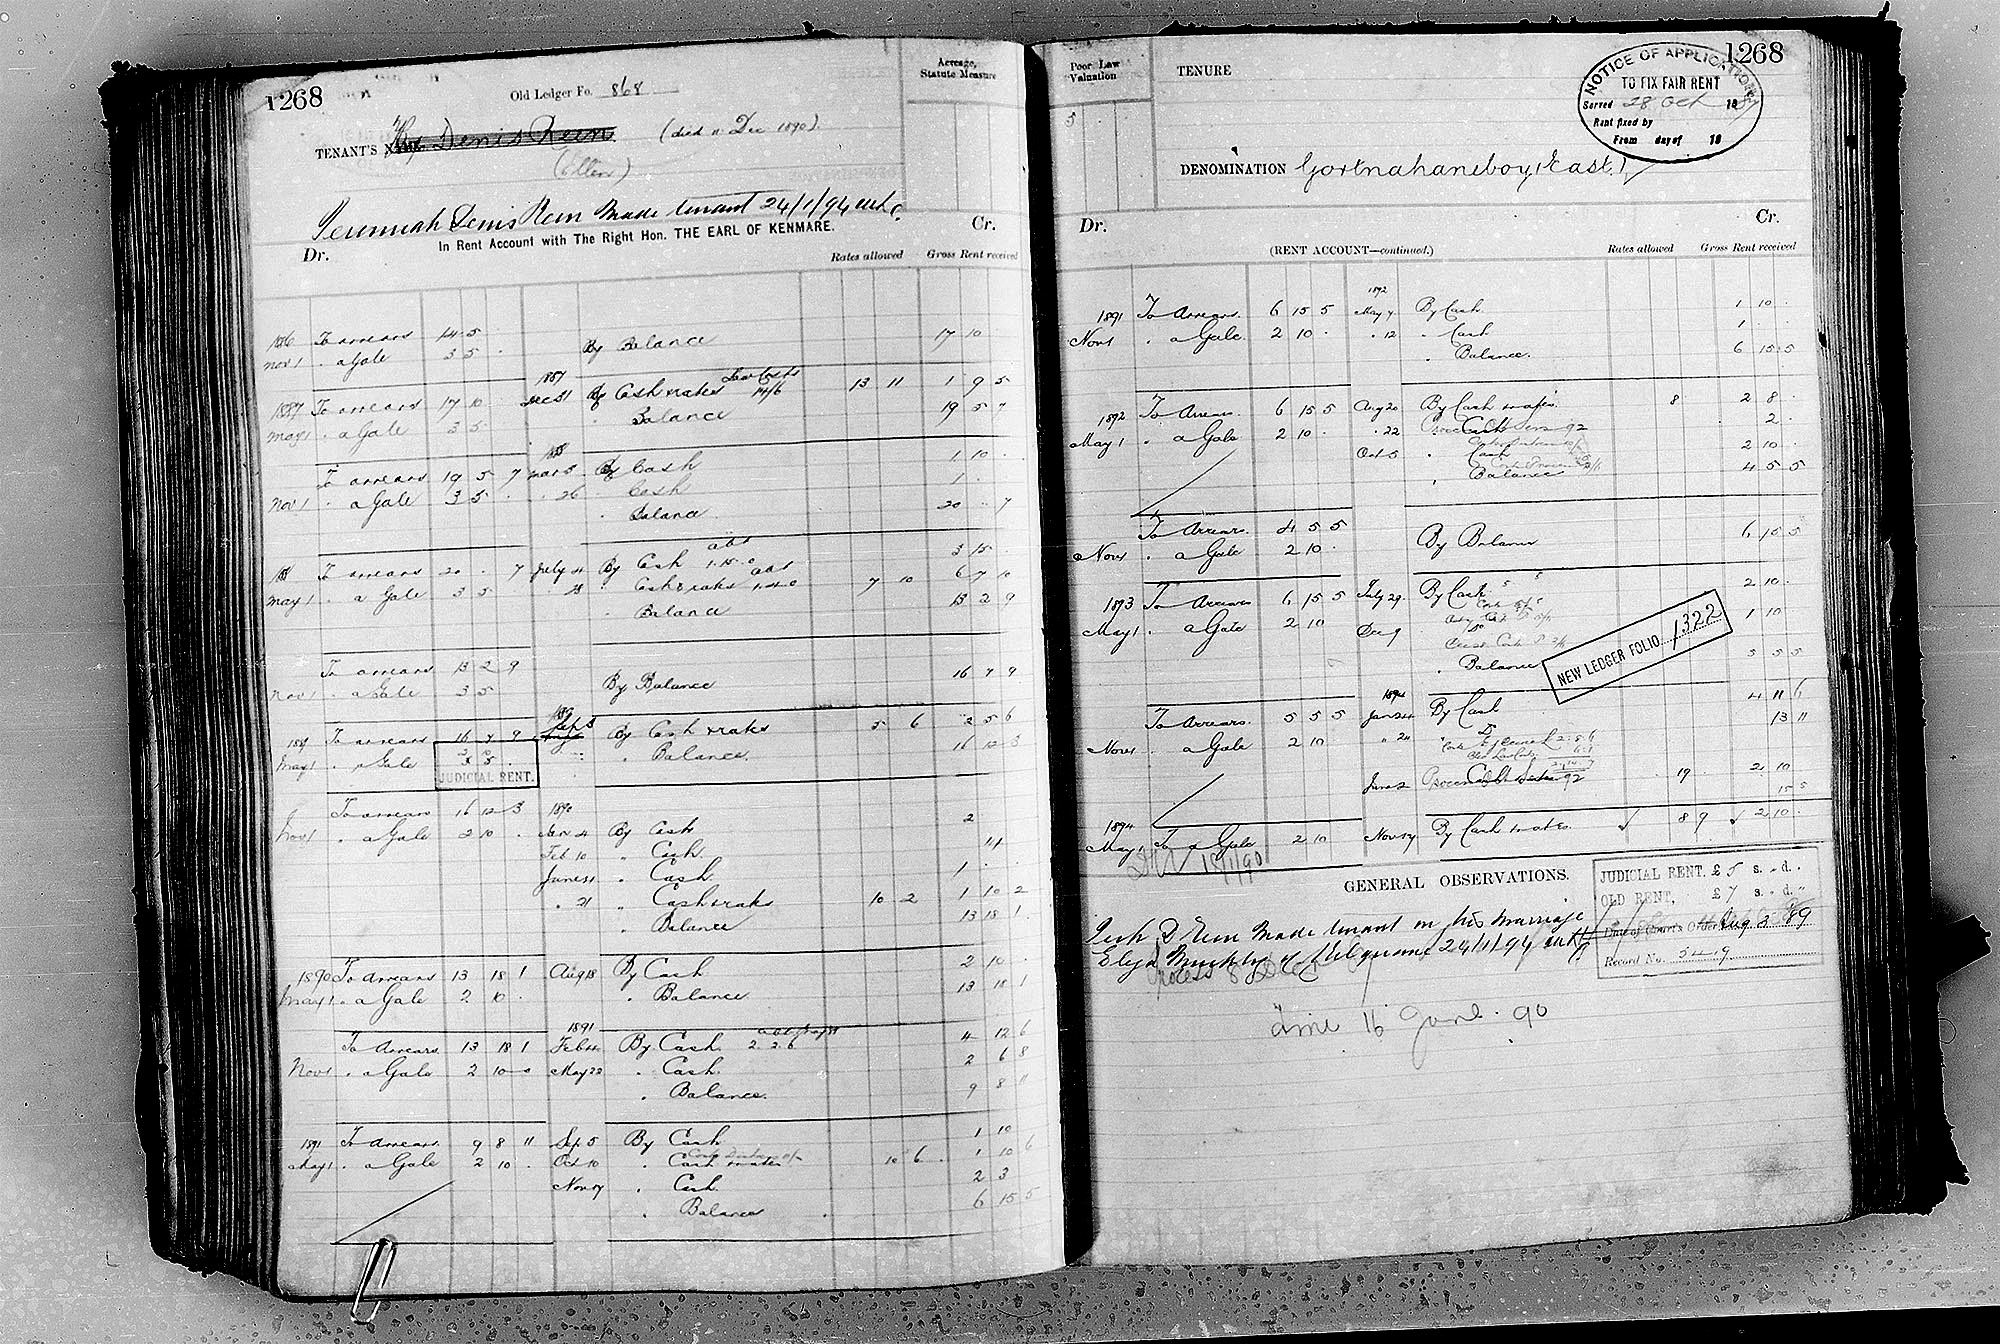 1268
Old Ledger Fo. 868
Acreage, Statute Measure
TENANT'S NAME Denis Reen (died 11 Dec 1890).
(Ellen)
Jeremiah Denis Reen Made tenant 24/1/94
In Rent Account with The Right Hon. THE EARL OF KENMARE.
Dr. Cr.
Rates allowed Gross Rent received
1886 To arrears 14 5
Nov 1 . a Gale 3 5 . By Balance 17 10
1887 To arrears 17 10 1887 Dec 31 By Cash & rates Law Costs 14/6 13 11 1 9 5
May 1 . a Gale 3 5 . Balance 19 5 7
To arrears 19 5 7 1888 Mar 3 By Cash 1 10 .
Nov 1 . a Gale 3 5 . . 26 . Cash 1 . .
. Balance 20 . 7
1888 To arrears 20 . 7 July 4 By Cash 1.15.0 abt 3 15 .
May 1 . a Gale 3 5 . . 28 . Cash & rates abt 7 10 6 7 10
. Balance 13 2 9
To arrears 13 2 9
Nov 1 . a Gale 3 5 By Balance 16 7 9
1889 To arrears 16 7 9 1889 Sep 3 By Cash & rates 5 6 2 5 6
May 1 . a Gale . Balance. 16 12 3
JUDICIAL RENT.
To arrears 16 12 3 1890
Nov 1 . a Gale 2 10 . Jan 4 By Cash 2
Feb 10 " Cash
June 11 " Cash 1 . .
. 21 " Cash & rates 10 2 1 10 2
" Balance 13 18 1
1890 To Arrears 13 18 1 Aug 18 By Cash 2 10 .
May 1 . a Gale 2 10 . " Balance 13 18 1
To Arrears 13 18 1 1891 Feb 4 By Cash 2. 2. 6 4 12 6
Nov 1 . a Gale 2 10 0 May 22 . Cash 2 6 8
. Balance. 9 8 11
1891 To Arrears 9 8 11 Sep 5 By Cash 1 10
May 1 . a Gale 2 10 . Oct 10 . Cash & rates 10 6 1 10 6
Nov 17 . Cash 2 3
. Balance 6 15 5
1268
Poor Law Valuation
5
TENURE
NOTICE OF APPLICATION
TO FIX FAIR RENT
Served 28 Oct 1887
Rent fixed by
From day of 18
DENOMINATION Gortnahaneboy (East)
Dr. Cr.
(RENT ACCOUNT—continued.) Rates allowed Gross Rent received
1891 To Arrears. 6 15 5 1892 May 7 By Cash 1 10 .
Nov 1 . a Gale. 2 10 . . 12 . Cash 1 .
. Balance. 6 15 5
1892 To Arrears. 6 15 5 Aug 20 By Cash & rates. 8 2 8 .
May 1 . a Gale 2 10 . . 22 92 . 2 .
Oct 5 . Cash 2 10 .
. Balance 4 5 5
To Arrears. 4 5 5
Nov 1 . a Gale 2 10 . By Balance 6 15 5
1893 To Arrears 6 15 5 July 29 By Cash 2 10 .
May 1 . a Gale 2 10 Dec 9 1 10
. Balance 3 5 5
NEW LEDGER FOLIO 1322
To Arrears. 5 5 5 1894 Jan 24 By Cash 4 11 6
Nov 1 . a Gale 2 10 " 24 Do 13 11
June 2 92 19 2 10
15 5
1894
May 1 To a Gale 2 10 Nov 17 By Cash & rates. 8 9 2 10
18/1/90
GENERAL OBSERVATIONS.
JUDICIAL RENT. £ 5 s. " d. "
OLD RENT, £ 7 s. " d. "
Date of Court's Order Aug 3 '89
Record No. 5419
Jerh D Reen Made tenant on his marriage
Eliza Murphy of 24/1/94
16 June. 90